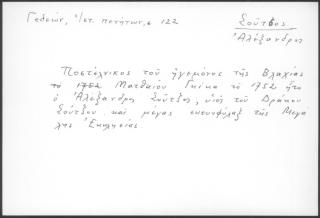 Γεδεών, Πατ. πινάκων, σ 122
Σοῦτσος
Ἀλέξανδρος
Ποστέλνικος τοῦ ἡγεμόνος τῆς Βλαχίας
τὸ 1752 Ματθαίου Γκίκα τὸ 1752 ἦτο
ὁ Ἀλέξανδρος Σοῦτσος, υἱὸς τοῦ Δράκου
Σούτσου καὶ μέγας σκευοφύλαξ τῆς Μεγά
λης Ἐκκλησίας.